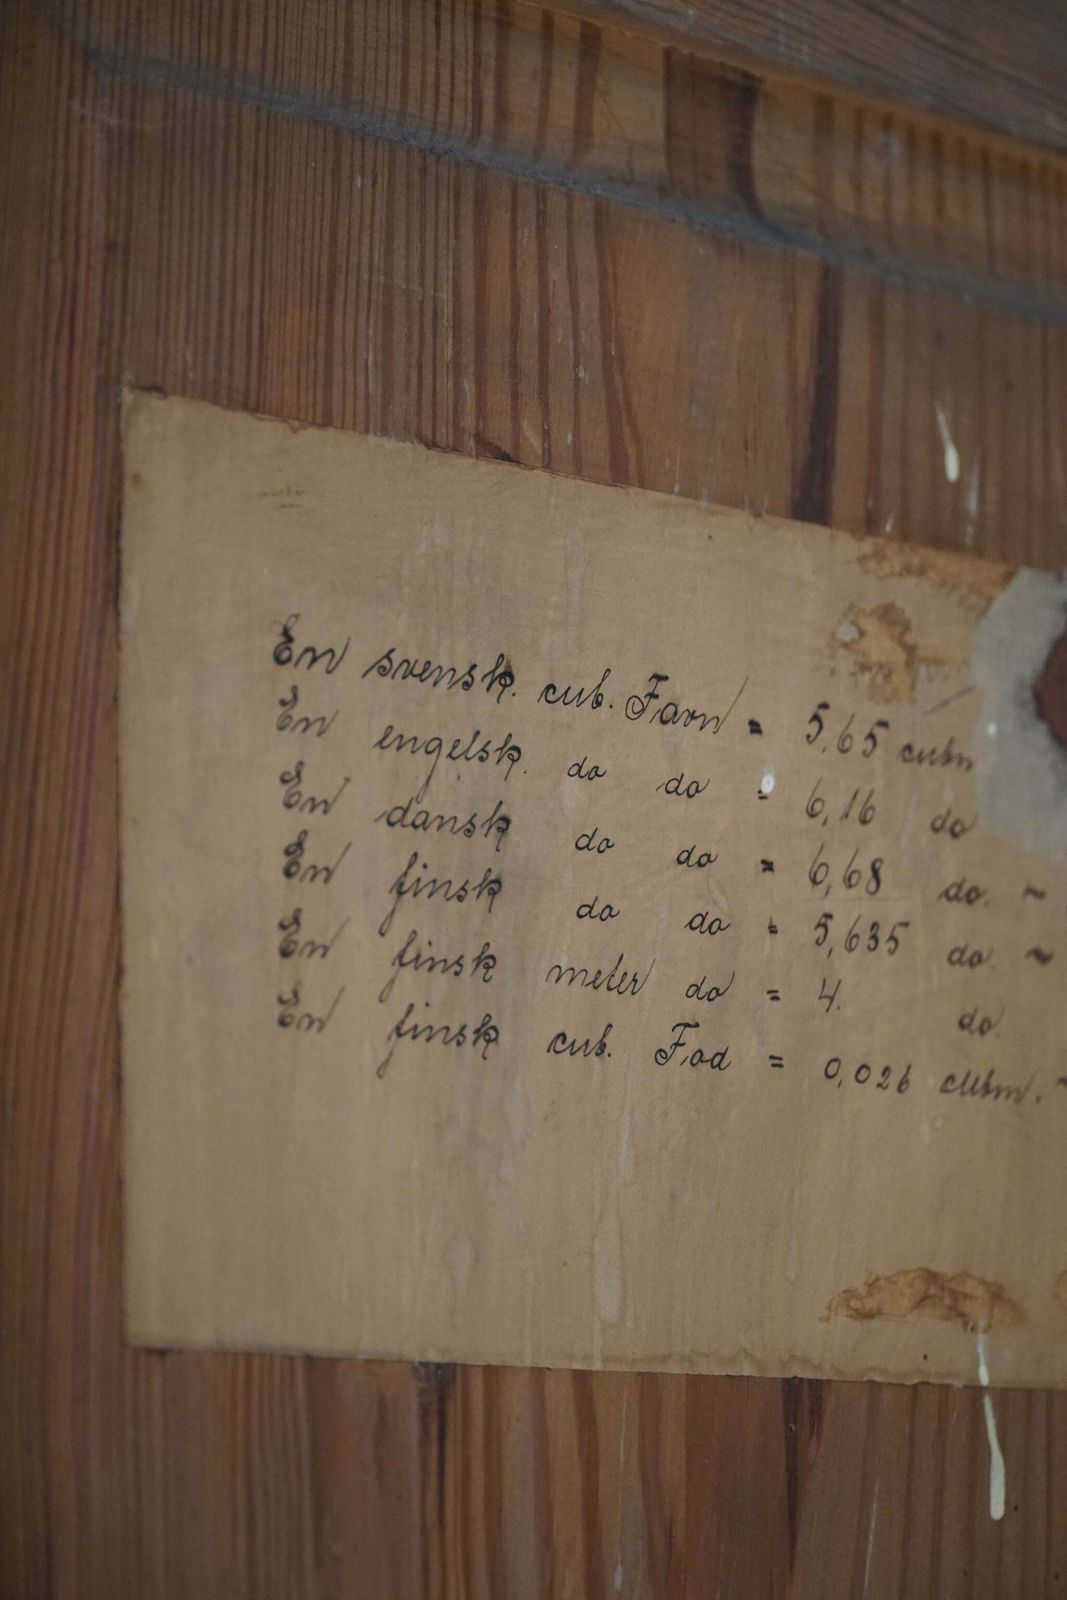 En svensk. cub. Favn = 5,65 cubm
En engelsk. do do = 6,16 do
En dansk do do = 6,68 do. ~
En finsk do do = 5,635 do ~
En finsk meter do = 4. do
En finsk cub. Fod = 0,026 cubm. ~